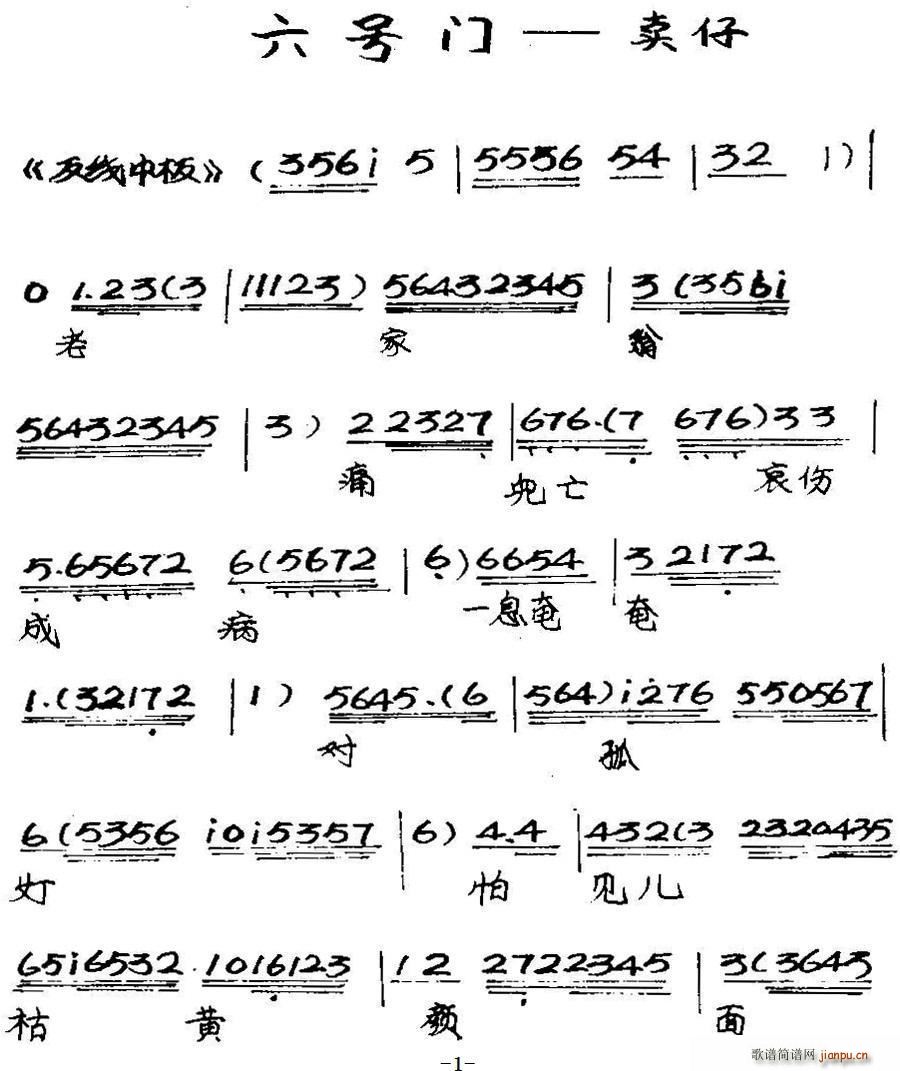 六号门——卖仔
《反线中板》 ( 3561̇ 5 | 5536 54 | 32 1 ) |
0 1.23(3 | 11123) 56432345 | 3 (3561̇
老 家 翁
56432345 | 3 ) 2 2327 | 676.(7 676)33 |
痛 儿亡 哀伤
5.65672 6(5672 | 6)6654 | 3 2172
成 病 一息奄 奄
1.(32172 | 1 ) 5645.(6 | 564)1̇2̇76 550567 |
对 孤
6(5356 1̇01̇5357 | 6) 4.4 | 432(3 2320435
灯 怕 见儿
651̇6532 1016123 | 12 2722345 | 3(3643
枯 黄 颜 面
-1-
歌谱简谱网 jianpu.cn